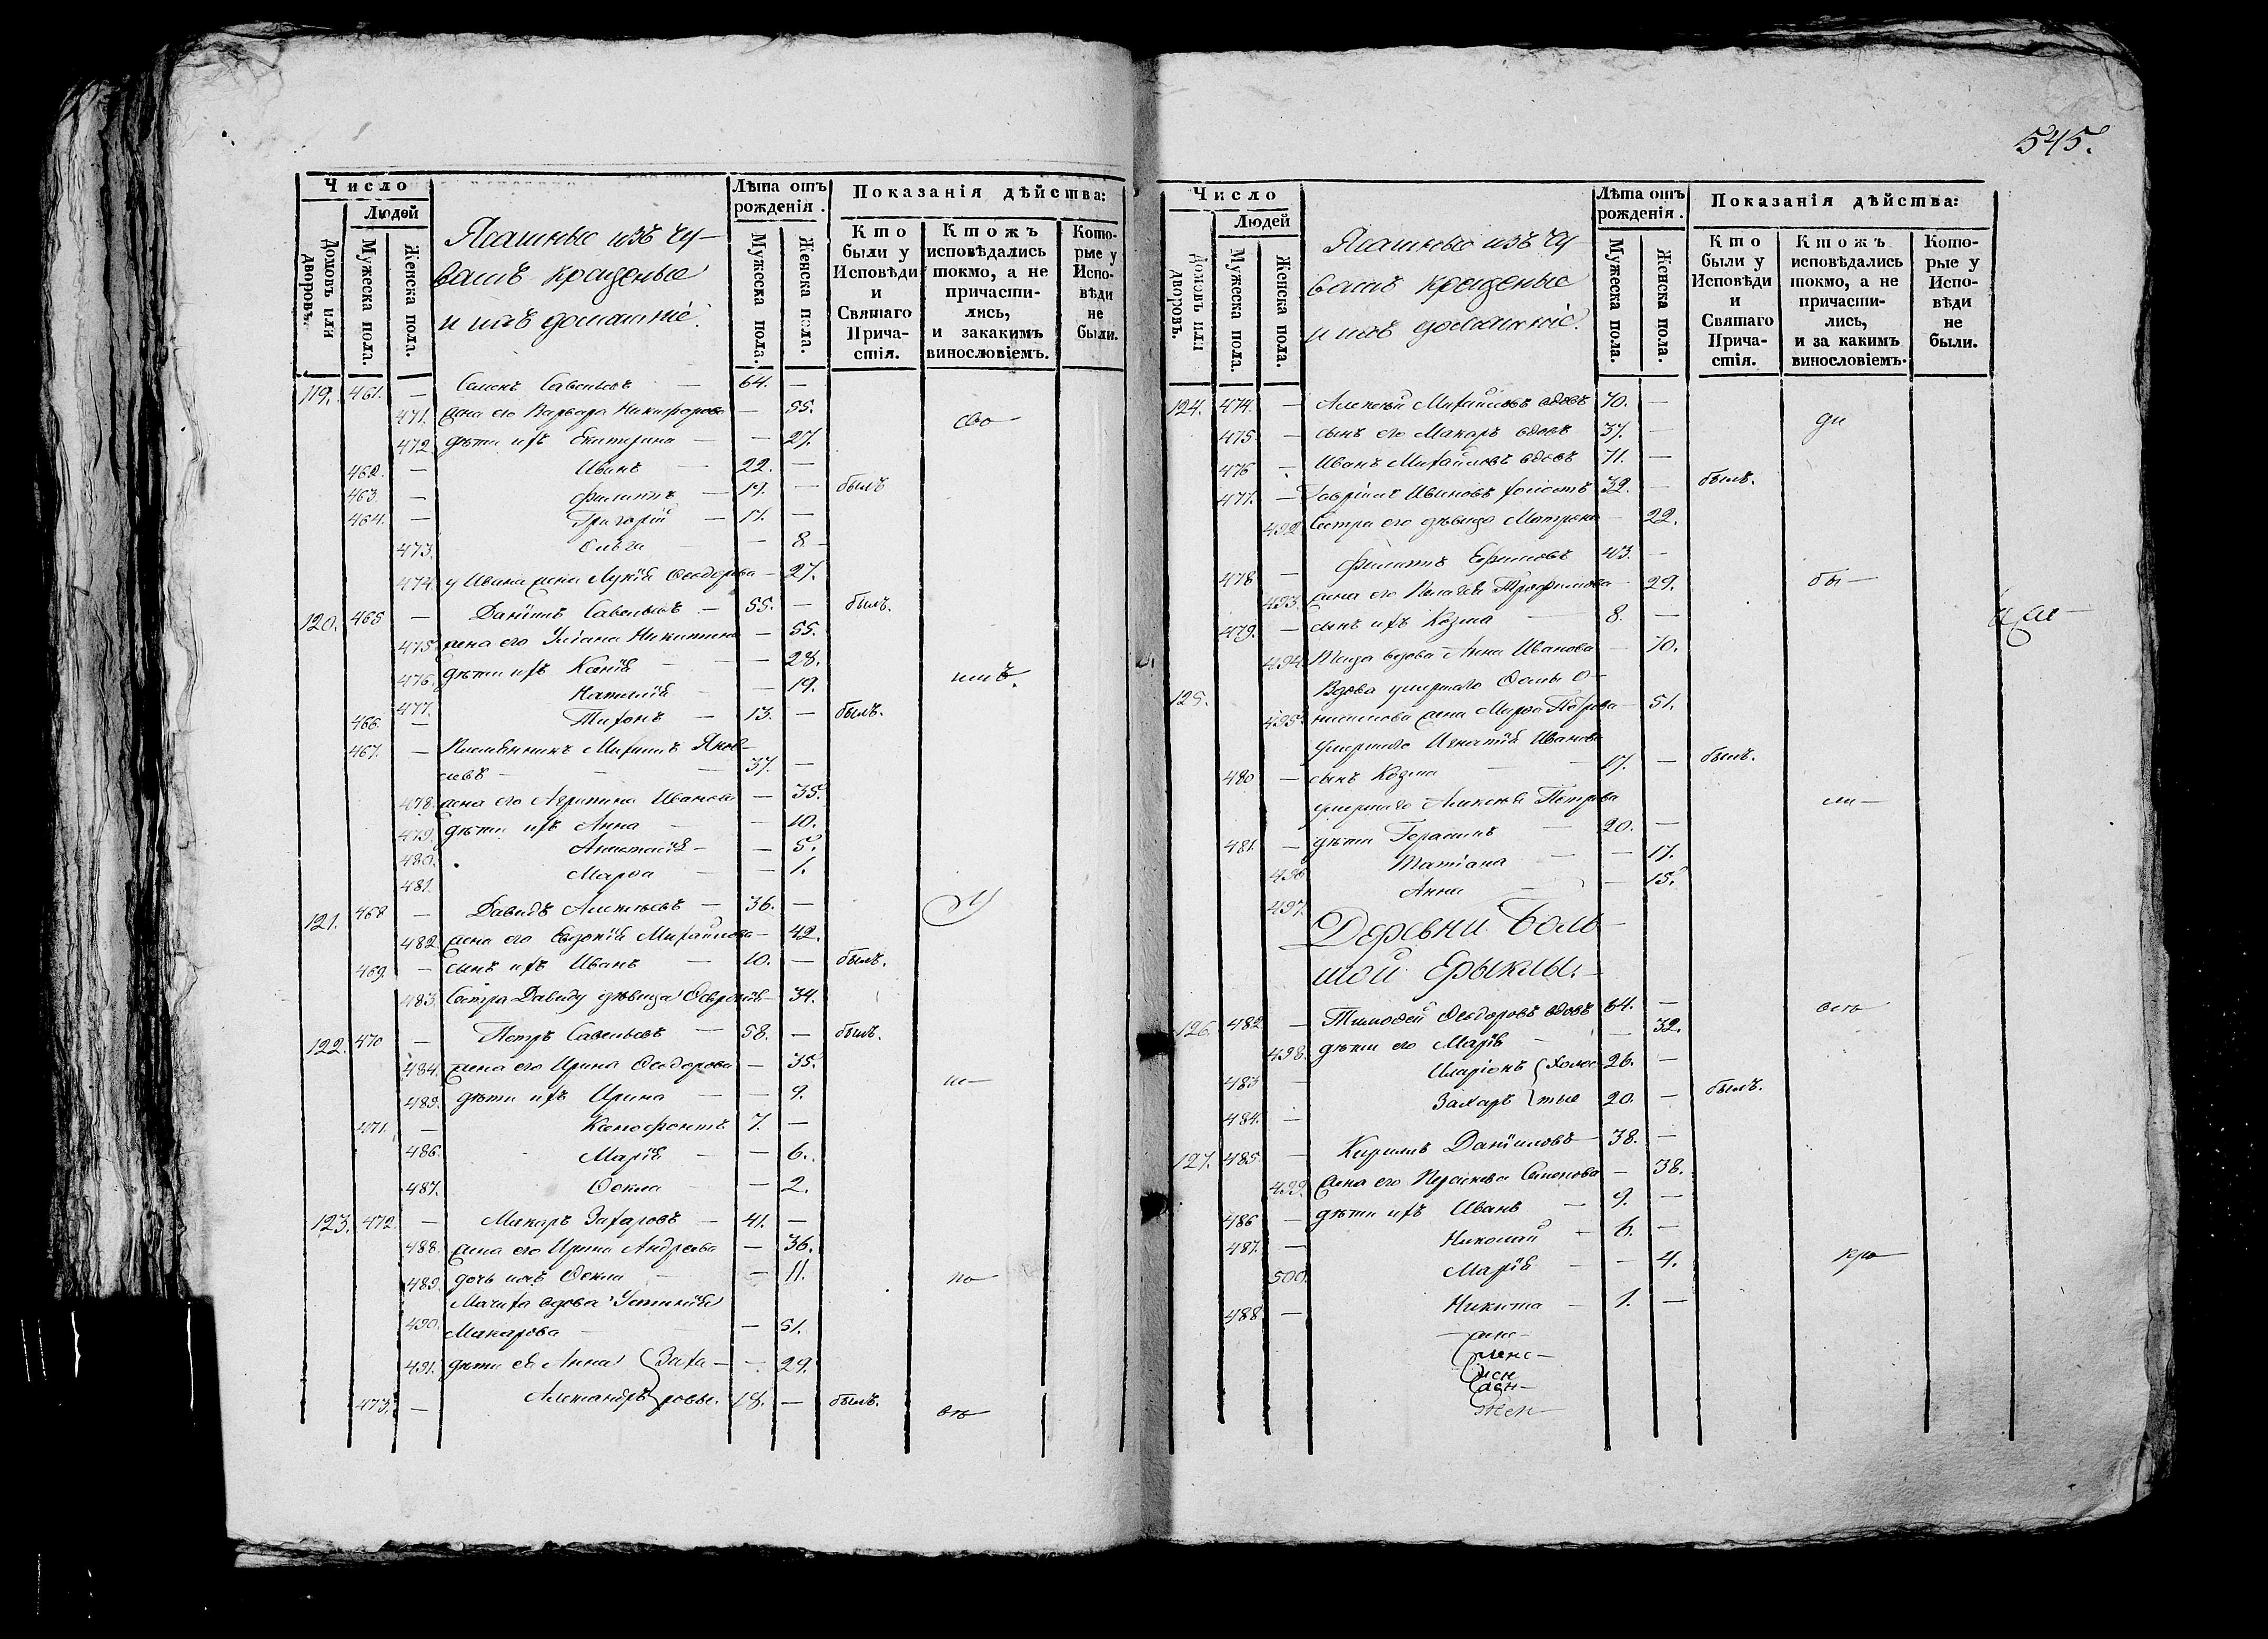 545.
Число
Людей
Домовъ или дворовъ.
Мужеска пола.
Женска пола.
Ясашные изъ чу-
вашъ крещеные
и ихъ домашніе.
Лѣта отъ рожденія.
Мужеска пола.
Женска пола.
Показанія дѣйства:
Кто были у Исповѣди и Святаго Причастія.
Ктожъ исповѣдались токмо, а не причастились, и закакимъ винословіемъ.
Которые у Исповѣди не были.
119. 461. — Семенъ Савельевъ — 64. —
471. жена его Варвара Никифорова — 55.
сво
472. дѣти ихъ Екатерина — — 27.
462. — Иванъ — 22. —
463. — Филиппъ — 19. — былъ
464. — Григорій — 11. —
473. Ольга — 8 —
474. у Ивана жена Лукія Ѳеодорова — 27.
120. 465 — Даніилъ Савельевъ — 55. — былъ.
475. жена его Уліана Никитина — 55.
476. дѣти ихъ Ксенія — — 28.
477. Наталія — 19.
466. — Тихонъ — 13. — былъ.
467. — Племянникъ Михаилъ Яков-
левъ — — — 37. —
478. жена его Агрипина Иванова — 35.
479. дѣти ихъ Анна — — 10.
480. Анастасія — — 5.
481. Марѳа — 1.
121. 468 — Давидъ Алексѣевъ — 36. —
482. жена его Евдокія Михайлова — 42.
469. — сынъ ихъ Иванъ — 10. — былъ.
483. Сестра Давиду дѣвица — 34.
122. 470 — Петръ Савельевъ — 58. — былъ.
484. жена его Ирина Ѳеодорова — 35.
485. дѣти ихъ Ирина — — 9.
471. — Ксенофонтъ 7. —
486. Марія — — 6.
487. Ѳекла — — 2.
123. 472. — Макаръ Захаровъ — 41. —
488. жена его Ирина Андреева — 36.
489. дочь ихъ Ѳекла — — 11.
по
Мачиха вдова Устинія
490. Макарова — — 51.
491. дѣти ея Анна Заха- — 29.
473. — Александръ ровы. 18. — былъ.
Число
Людей
Домовъ или дворовъ.
Мужеска пола.
Женска пола.
Ясашные изъ чу-
вашъ крещеные
и ихъ домашніе.
Лѣта отъ рожденія.
Мужеска пола.
Женска пола.
Показанія дѣйства:
Кто были у Исповѣди и Святаго Причастія.
Ктожъ исповѣдались токмо, а не причастились, и за какимъ винословіемъ.
Которые у Исповѣди не были.
124. 474. — Алексѣй Михайловъ вдовъ 70. —
475 — сынъ его Макаръ вдовъ 37. —
476 — Иванъ Михайловъ вдовъ 71. —
477. — Гавріилъ Ивановъ холостъ 32. — былъ.
492 Сестра его дѣвица Матрона — 22.
478 — Филиппъ Ефимовъ 43. —
493. жена его Пелагея Трофимова — 29.
479. — сынъ ихъ Козма — 8. —
494. Теща вдова Анна Иванова — 70.
125. Вдова умершаго
495. жена Марѳа Петрова — 51.
умершаго Игнатія Иванова
480 — сынъ Козма — 17. — былъ.
умершаго Алексѣя Петрова
481. — дѣти Герасимъ — 20. —
496 Татіана — — 17.
497. Анна — — 15.
Деревни Боль-
шой Ерыклы.
126. 482. — Тимоѳей Ѳеодоровъ вдовъ 64. —
498. дѣти его Марія — — 32.
483 — Иларіонъ холос- 26. —
484. — Захаръ тые 20. — былъ.
127. 485 — Кирилъ Даніиловъ — 38. —
499. жена его Семенова — 38.
486 — дѣти ихъ Иванъ — 9. —
487. — Николай — 6. —
500. Марія — — 4.
488 — Никита — 1. —